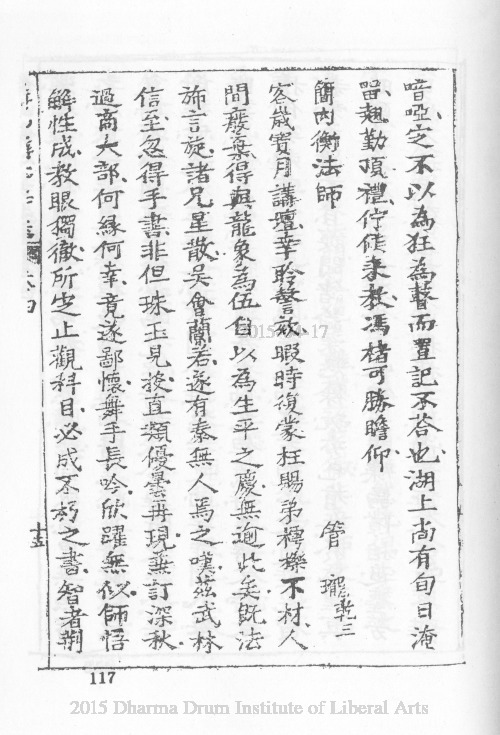 喑啞之不以為狂為瞽而置記不荅也湖上尚有旬日淹
留翹勤頂禮佇俟来教馮楮可勝瞻仰
簡內衡法師
管珵乾三
客歲寶月講壇幸聆謦欬暇時復蒙枉賜弟樗櫟不材人
間廢棄得與龍象為伍自以為生平之慶無逾此矣既法
斾言旋諸兄星散吳會蘭若遂有秦無人焉之嘆茲武林
信至忽得手書非但珠玉見投直類優曇再現兼訂深秋
過高大部何緣何幸竟遂鄙懷舞手長吟欣躍無似師悟
解性成教眼獨徹所定止觀科目必成不朽之書智者荆
卷四
十五
117
2015-04-17
2015 Dharma Drum Institute of Liberal Arts